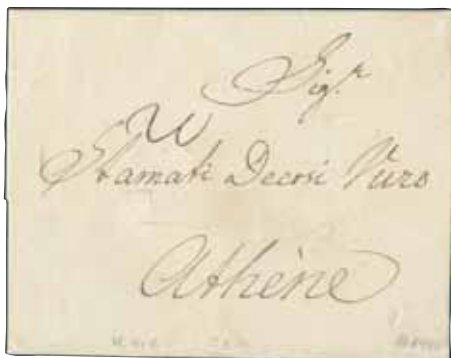 Sig.r
Stamati Decosi Vuro
Athène